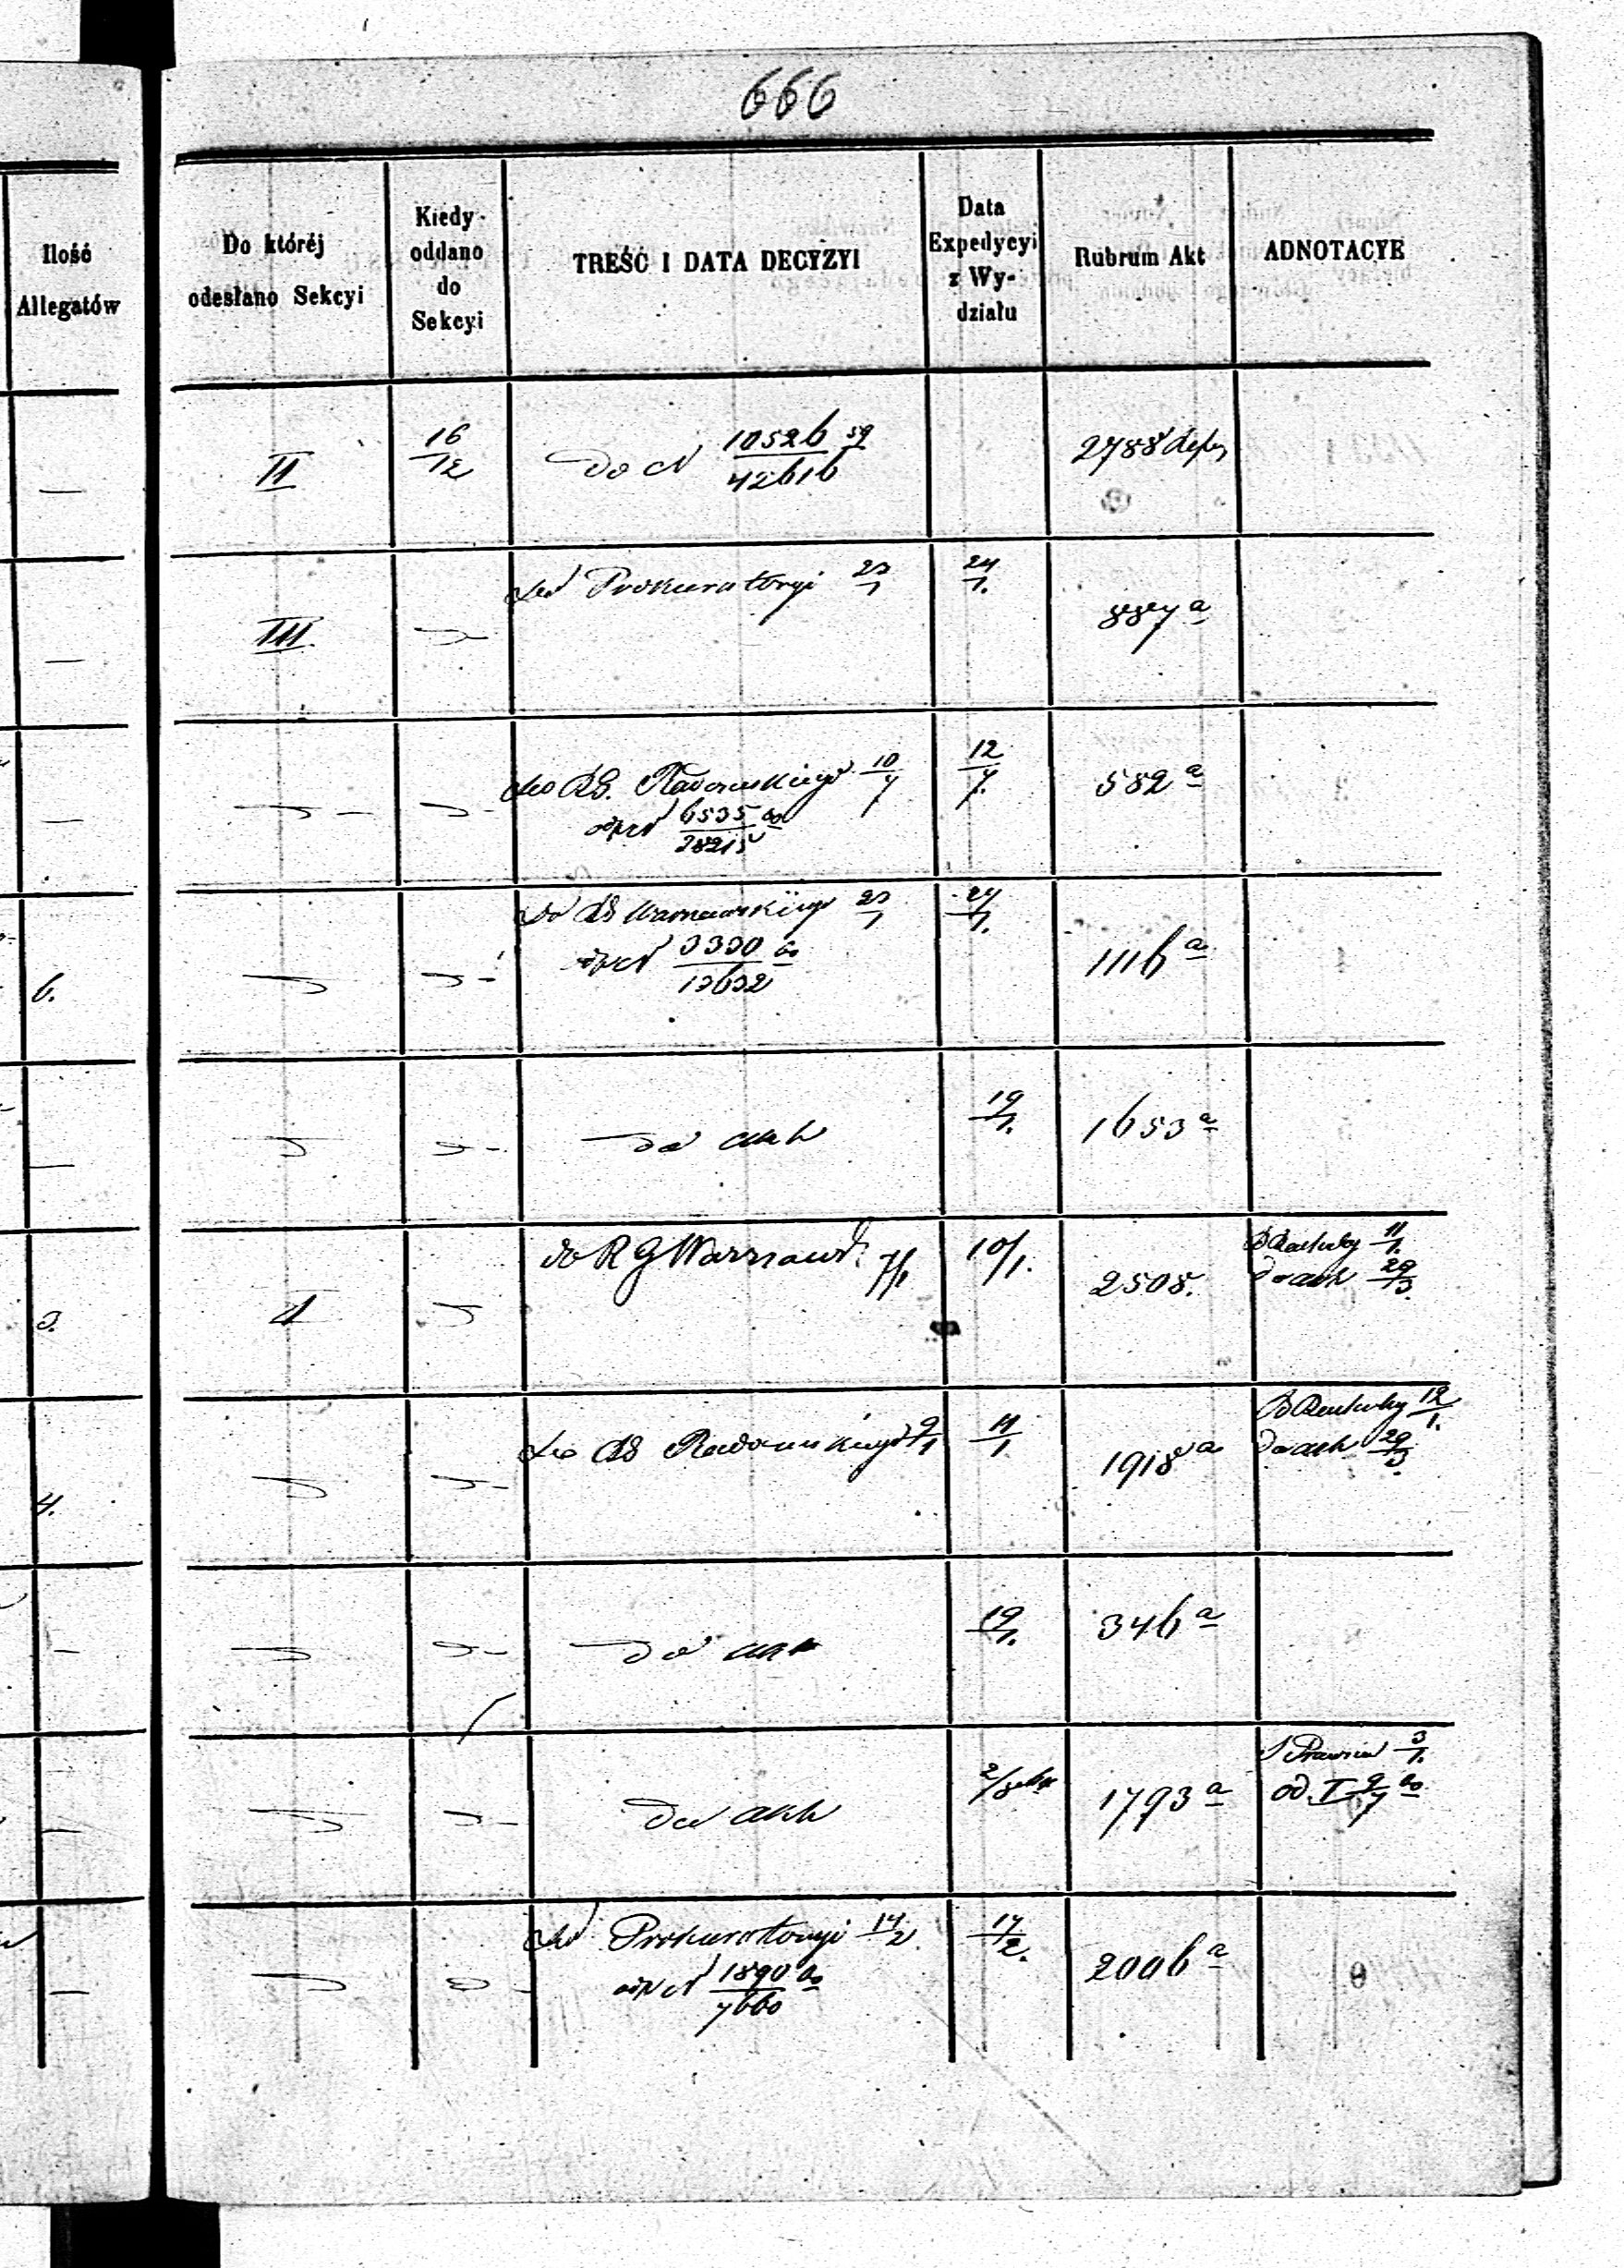 666
Ilość
Allegatów
Do któréj
odesłano Sekcyi
Kiedy
oddano
do
Sekcyi
TREŚĆ I DATA DECYZYI
Data
Expedycyi
z Wy-
działu
Rubrum Akt
ADNOTACYE
—
II
16/12
do N 10526/42616 59
2788
—
III.
do Prokuratoryi 23/1
24/1.
887 a
—
do RG. Radomskiego 10/7
12/7.
582 a
odp N 6535/28215 60
6.
do RG Warszawskiego 23/1
24/1.
1116 a
odp N 3330/13632 60
—
do akt
19/1.
1653 a
3.
II
do RG Warszaws. 7/1
10/1.
2508.
11/1.
do akt 29/3.
4.
do RG Radomskiego 9/1
11/1
1918 a
12/1.
do akt 29/3.
—
do akt
19/1.
346 a
—
do akt
1793 a
3/1.
od. I 9/7 60
—
do Prokuratoryi 14/2
17/2.
2006 a
odp N 1890/7660 60